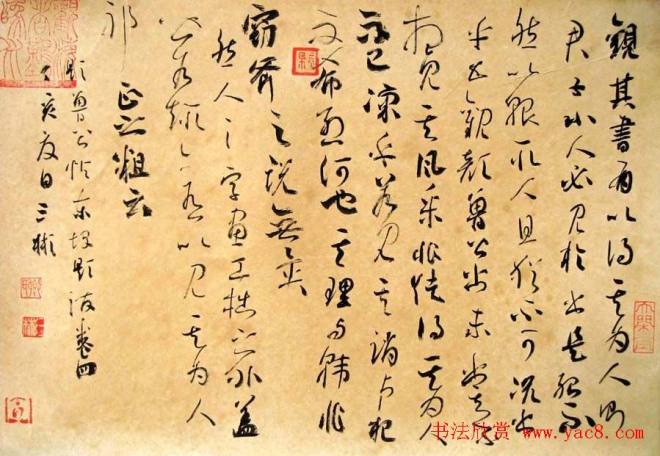 觀其書有以得其為人則
君子小人必見於書是殆不
然以貌取人且猶不可況書
乎吾觀顏魯公書未嘗不
想見其風采非徒得其為人
而已凜乎若見其誚盧杞
而叱希烈何也其理與韓非
竊斧之說無異
然人之字畫工拙之外蓋
皆有趣亦有以見其為人
邪正之粗云
題魯公帖東坡題跋卷四
丁亥夏日
书法欣赏 www.yac8.com